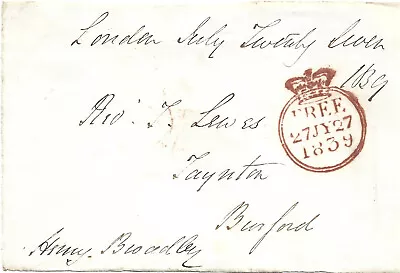 London July Twenty Seven
1839
Revd. T. Lewes
Taynton
Burford
Henry Broadley
FREE
27JY27
1839